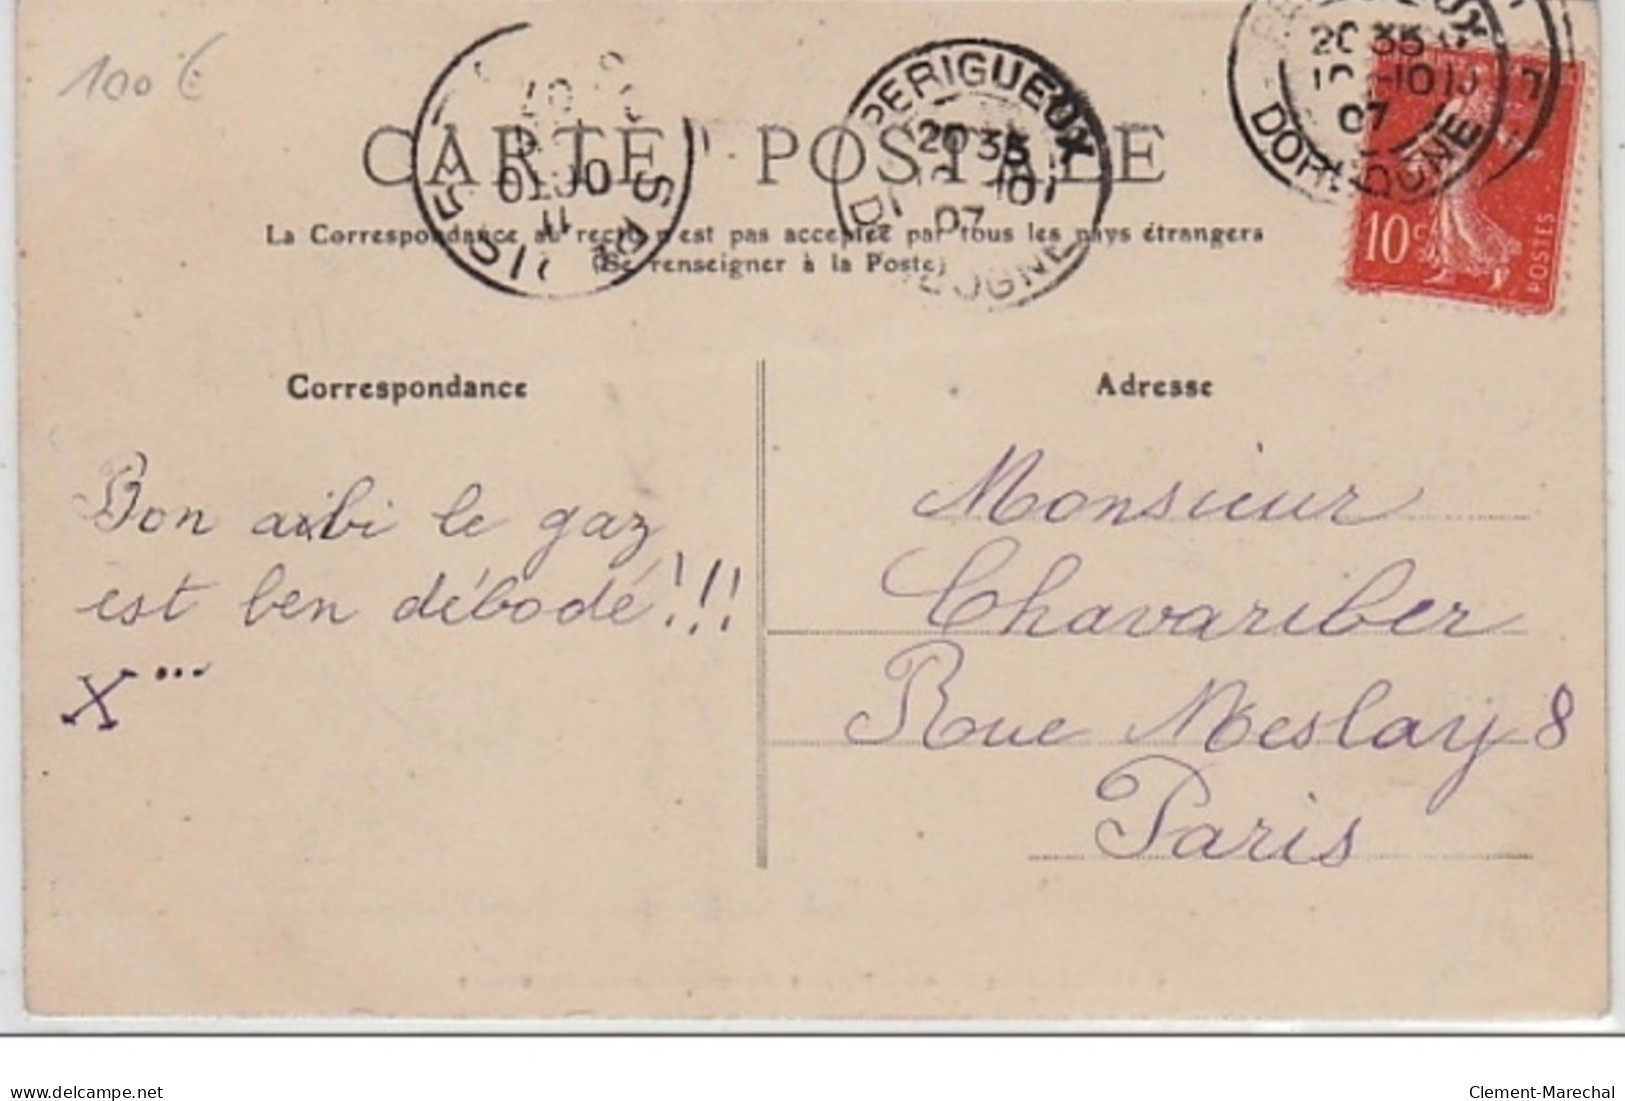 100 €
CARTE POSTALE
La Correspondance au recto n'est pas acceptée par tous les pays étrangers
(Se renseigner à la Poste)
PERIGUEUX
20 35
10 -10
07
DORDOGNE
20 35
10 -10
07
DORDOGNE
10 c
POSTES
Correspondance
Adresse
Bon aibi le gaz
est ben débodé !!!
X...
Monsieur
Chavariber
Rue Meslay 8
Paris
delcampe.net
Clement-Marechal